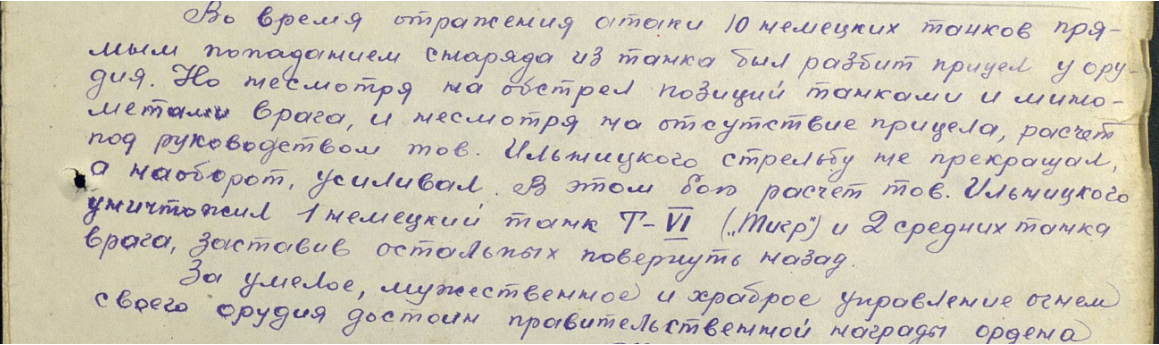 Во время отражения атаки 10 немецких танков пря-
мым попаданием снаряда из танка был разбит прицел у ору-
дия. Но несмотря на обстрел позиций танками и мино-
метами врага, и несмотря на отсутствие прицела, расчет
под руководством тов. Ильницкого стрельбу не прекращал,
а наоборот, усиливал. В этом бою расчет тов. Ильницкого
уничтожил 1 немецкий танк Т-VI („Тигр") и 2 средних танка
врага, заставив остальных повернуть назад.
За умелое, мужественное и храброе управление огнем
своего орудия достоин правительственной награды ордена